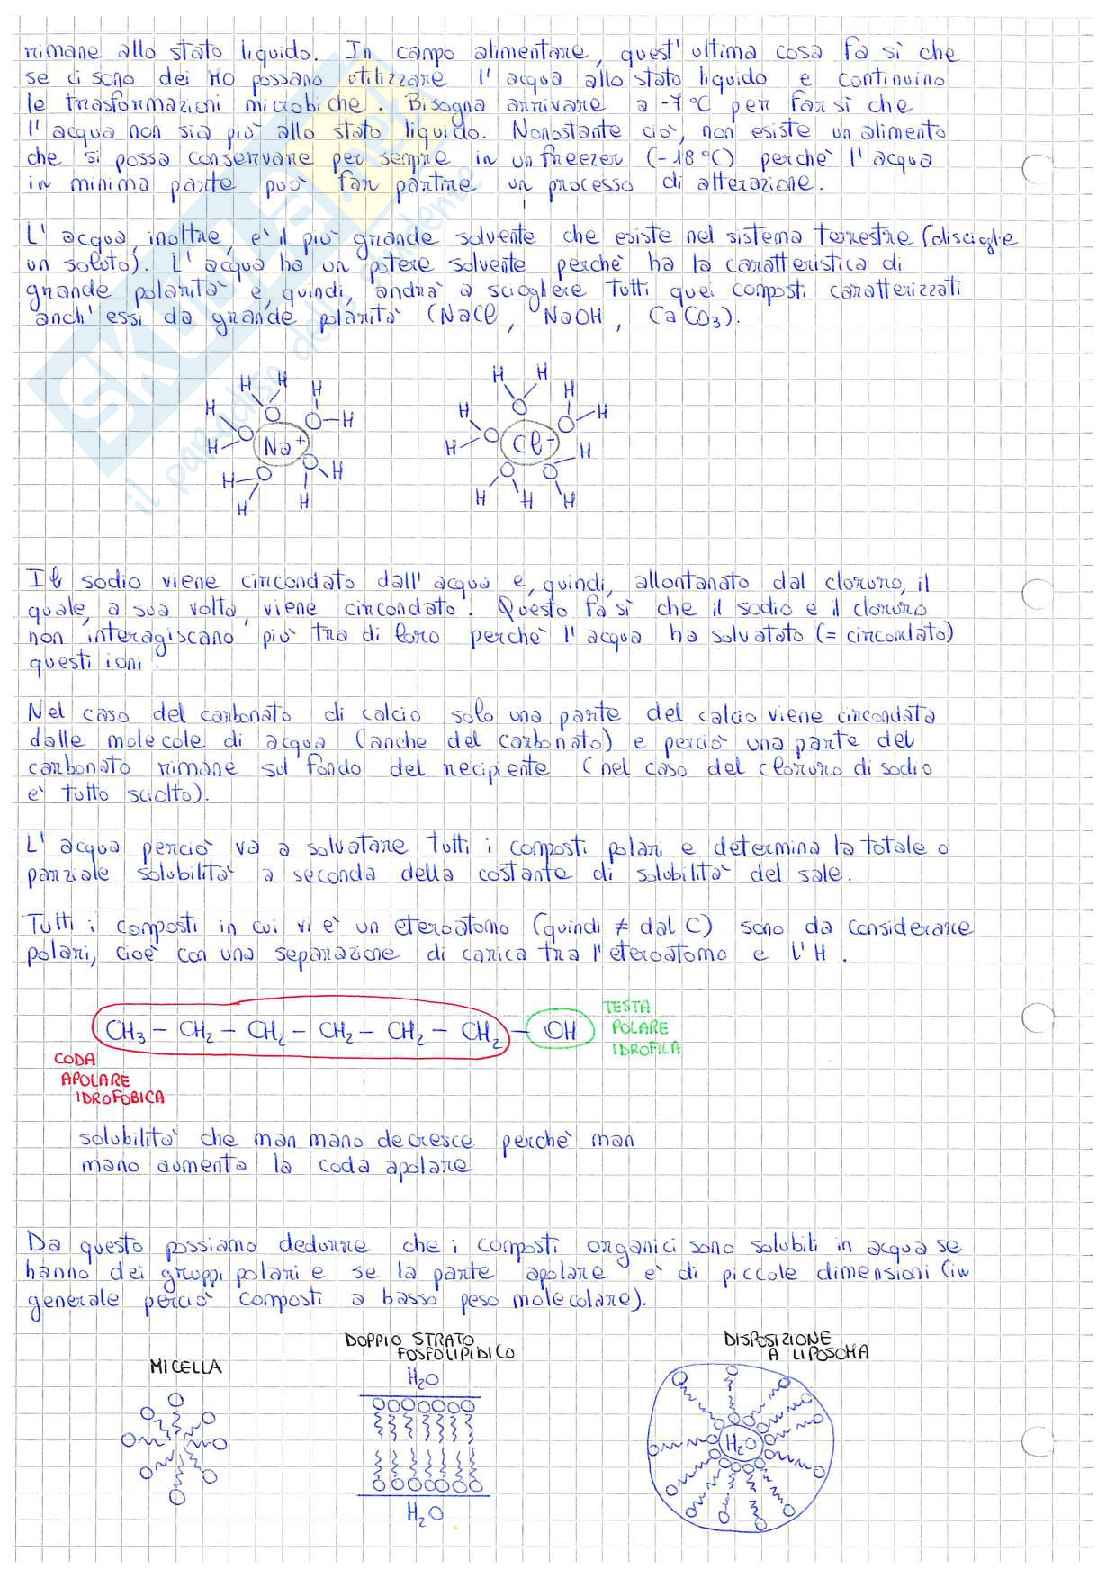 rimane allo stato liquido. In campo alimentare, quest'ultima cosa fa sì che
se ci sono dei MO possano utilizzare l'acqua allo stato liquido e continuino
le trasformazioni microbiche. Bisogna arrivare a -7°C per far sì che
l'acqua non sia più allo stato liquido. Nonostante ciò, non esiste un alimento
che si possa conservare per sempre in un freezer (-18°C) perchè l'acqua
in minima parte può far partire un processo di alterazione.
L'acqua, inoltre, è il più grande solvente che esiste nel sistema terrestre (discioglie
un soluto). L'acqua ha un potere solvente perchè ha la caratteristica di
grande polarità e, quindi, andrà a sciogliere tutti quei composti caratterizzati
anch'essi da grande polarità (NaCl, NaOH, CaCO3).
H H H H H H H H H H
O O O O O
Na+
H H H H H H H H H H
O O O O O
Cl-
Il sodio viene circondato dall'acqua e, quindi, allontanato dal cloruro, il
quale, a sua volta, viene circondato. Questo fa sì che il sodio e il cloruro
non interagiscano più tra di loro perchè l'acqua ha solvatato (= circondato)
questi ioni
Nel caso del carbonato di calcio solo una parte del calcio viene circondata
dalle molecole di acqua (anche del carbonato) e perciò una parte del
carbonato rimane sul fondo del recipiente (nel caso del cloruro di sodio
è tutto sciolto).
L'acqua perciò va a solvatare tutti i composti polari e determina la totale o
parziale solubilità a seconda della costante di solubilità del sale.
Tutti i composti in cui vi è un eteroatomo (quindi ≠ dal C) sono da considerare
polari, cioè con una separazione di carica tra l'eteroatomo e l'H.
CH3 - CH2 - CH2 - CH2 - CH2 - CH2 - OH
TESTA
POLARE
IDROFILA
CODA
APOLARE
IDROFOBICA
solubilità che man mano decresce perchè man
mano aumenta la coda apolare
Da questo possiamo dedurre che i composti organici sono solubili in acqua se
hanno dei gruppi polari e se la parte apolare è di piccole dimensioni (in
generale perciò composti a basso peso molecolare).
MICELLA
DOPPIO STRATO
FOSFOLIPIDICO
H2O
H2O
DISPOSIZIONE
A LIPOSOMA
H2O